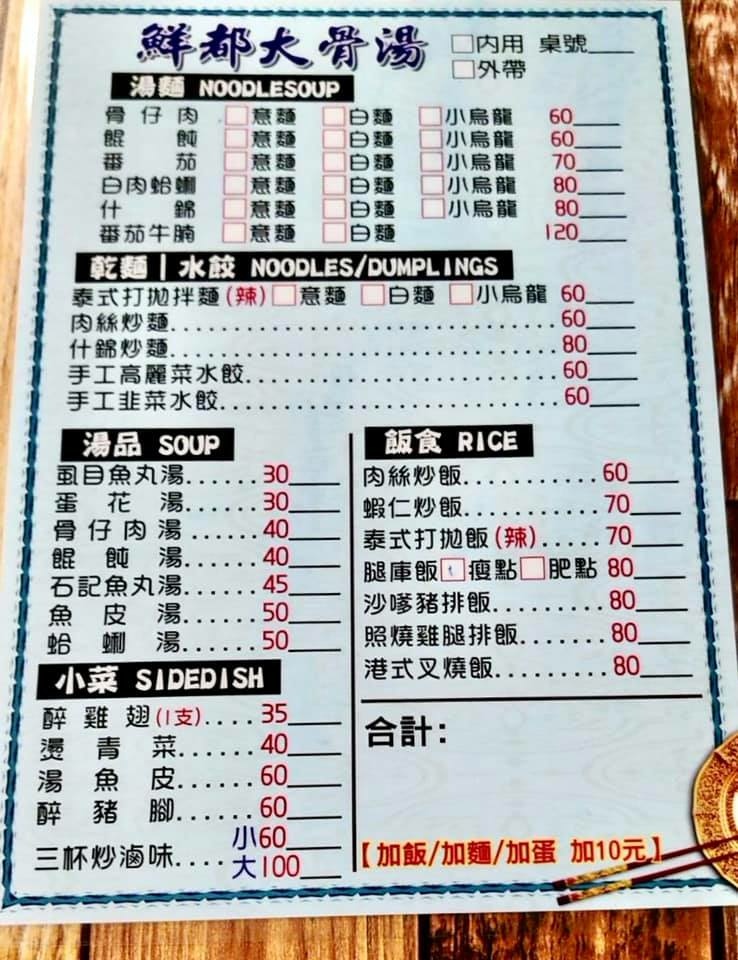 鮮都大骨湯 □內用 桌號____
□外帶
湯麵 NOODLESOUP
骨仔肉 □意麵 □白麵 □小烏龍 60____
餛飩 □意麵 □白麵 □小烏龍 60____
番茄 □意麵 □白麵 □小烏龍 70____
白肉蛤蜊 □意麵 □白麵 □小烏龍 80____
什錦 □意麵 □白麵 □小烏龍 80____
番茄牛腩 □意麵 □白麵 120____
乾麵|水餃 NOODLES/DUMPLINGS
泰式打拋拌麵(辣) □意麵 □白麵 □小烏龍 60____
肉絲炒麵........................................60____
什錦炒麵........................................80____
手工高麗菜水餃................................60____
手工韭菜水餃...................................60____
湯品 SOUP
虱目魚丸湯......30____
蛋花湯......30____
骨仔肉湯......40____
餛飩湯......40____
石記魚丸湯......45____
魚皮湯......50____
蛤蜊湯......50____
小菜 SIDEDISH
醉雞翅(1支)....35____
燙青菜.....40____
湯魚皮.....60____
醉豬腳.....60____
三杯炒滷味....小60____
大100____
飯食 RICE
肉絲炒飯..........60____
蝦仁炒飯..........70____
泰式打拋飯(辣).....70____
腿庫飯□瘦點□肥點 80____
沙嗲豬排飯........80____
照燒雞腿排飯.......80____
港式叉燒飯.........80____
合計:
【加飯/加麵/加蛋 加10元】